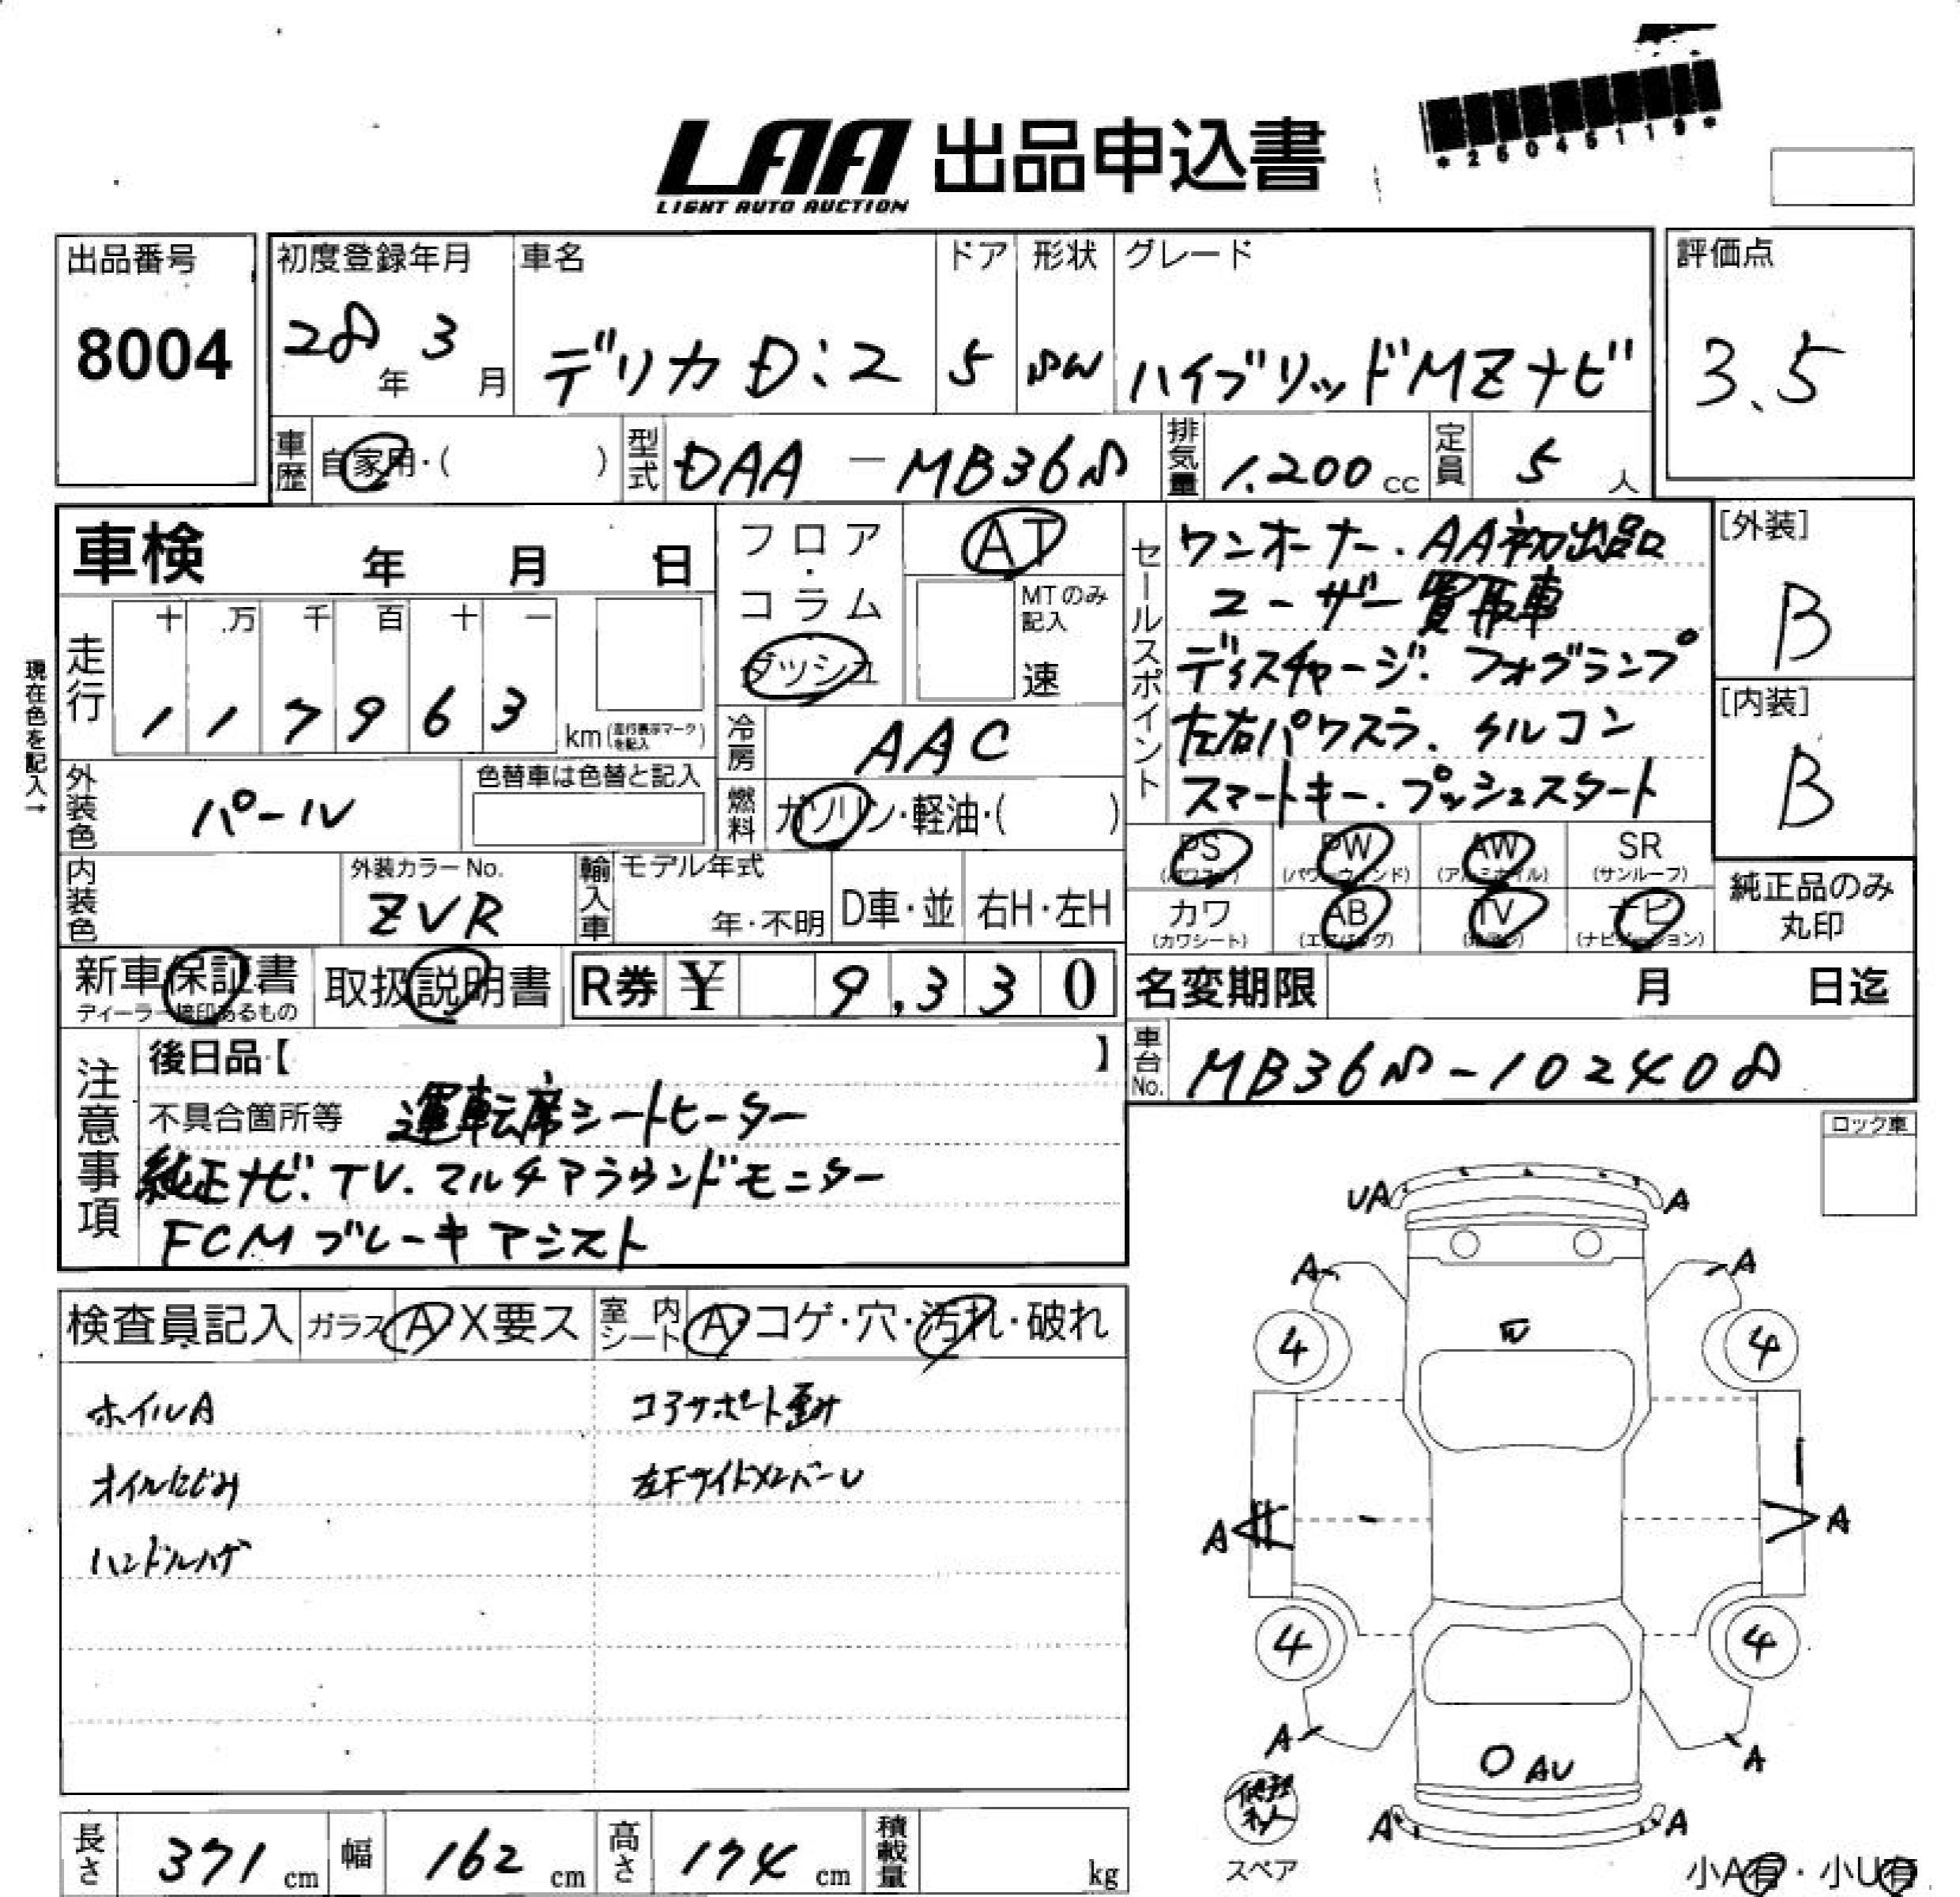 *25045119*
LAA 出品申込書
LIGHT AUTO AUCTION
出品番号
8004
初度登録年月
28年 3月
車名
デリカ D:2
ドア
5
形状
SW
グレード
ハイブリッドMZナビ
評価点
3.5
車歴 自家用・( )
型式 DAA-MB36S
排気量 1.200 cc
定員 5 人
車検 年 月 日
現在色を記入→
走行
十 万 千 百 十 一
1 1 7 9 6 3 km(走行表示マークを記入)
外装色 パール
色替車は色替と記入
内装色
外装カラーNo.
ZVR
フロア・コラム
ダッシュ
AT
MTのみ記入
速
冷房 AAC
燃料 ガソリン・軽油・( )
輸入車
モデル年式
年・不明
D車・並
右H・左H
セールスポイント
ワンオーナー.AA初出品
ユーザー買取車
ディスチャージ.フォグランプ
左右パワスラ.クルコン
スマートキー.プッシュスタート
[外装]
B
[内装]
B
PS PW AW SR
(パワステ) (パワーウィンド) (アルミホイル) (サンルーフ)
カワ AB TV ナビ
(カワシート) (エアバッグ) (ナビゲーション)
純正品のみ
丸印
新車保証書
ディーラー捺印あるもの
取扱説明書
R券 ¥ 9,330
名変期限 月 日迄
車台No. MB36S-102408
注意事項
後日品【 】
不具合箇所等 運転席シートヒーター
純正ナビ.TV.マルチアラウンドモニター
FCM ブレーキアシスト
ロック車
検査員記入
ガラス A X要ス
室内シート A・コゲ・穴・汚れ・破れ
ホイルA
コアサポート歪み
オイルにじみ
左Fサイドメンバー U
ハンドルハゲ
UA A
A A
4 4
A A
4 4
A A
AU
A A
修理キット
スペア
小A有・小U有
長さ 371 cm
幅 162 cm
高さ 174 cm
積載量 kg